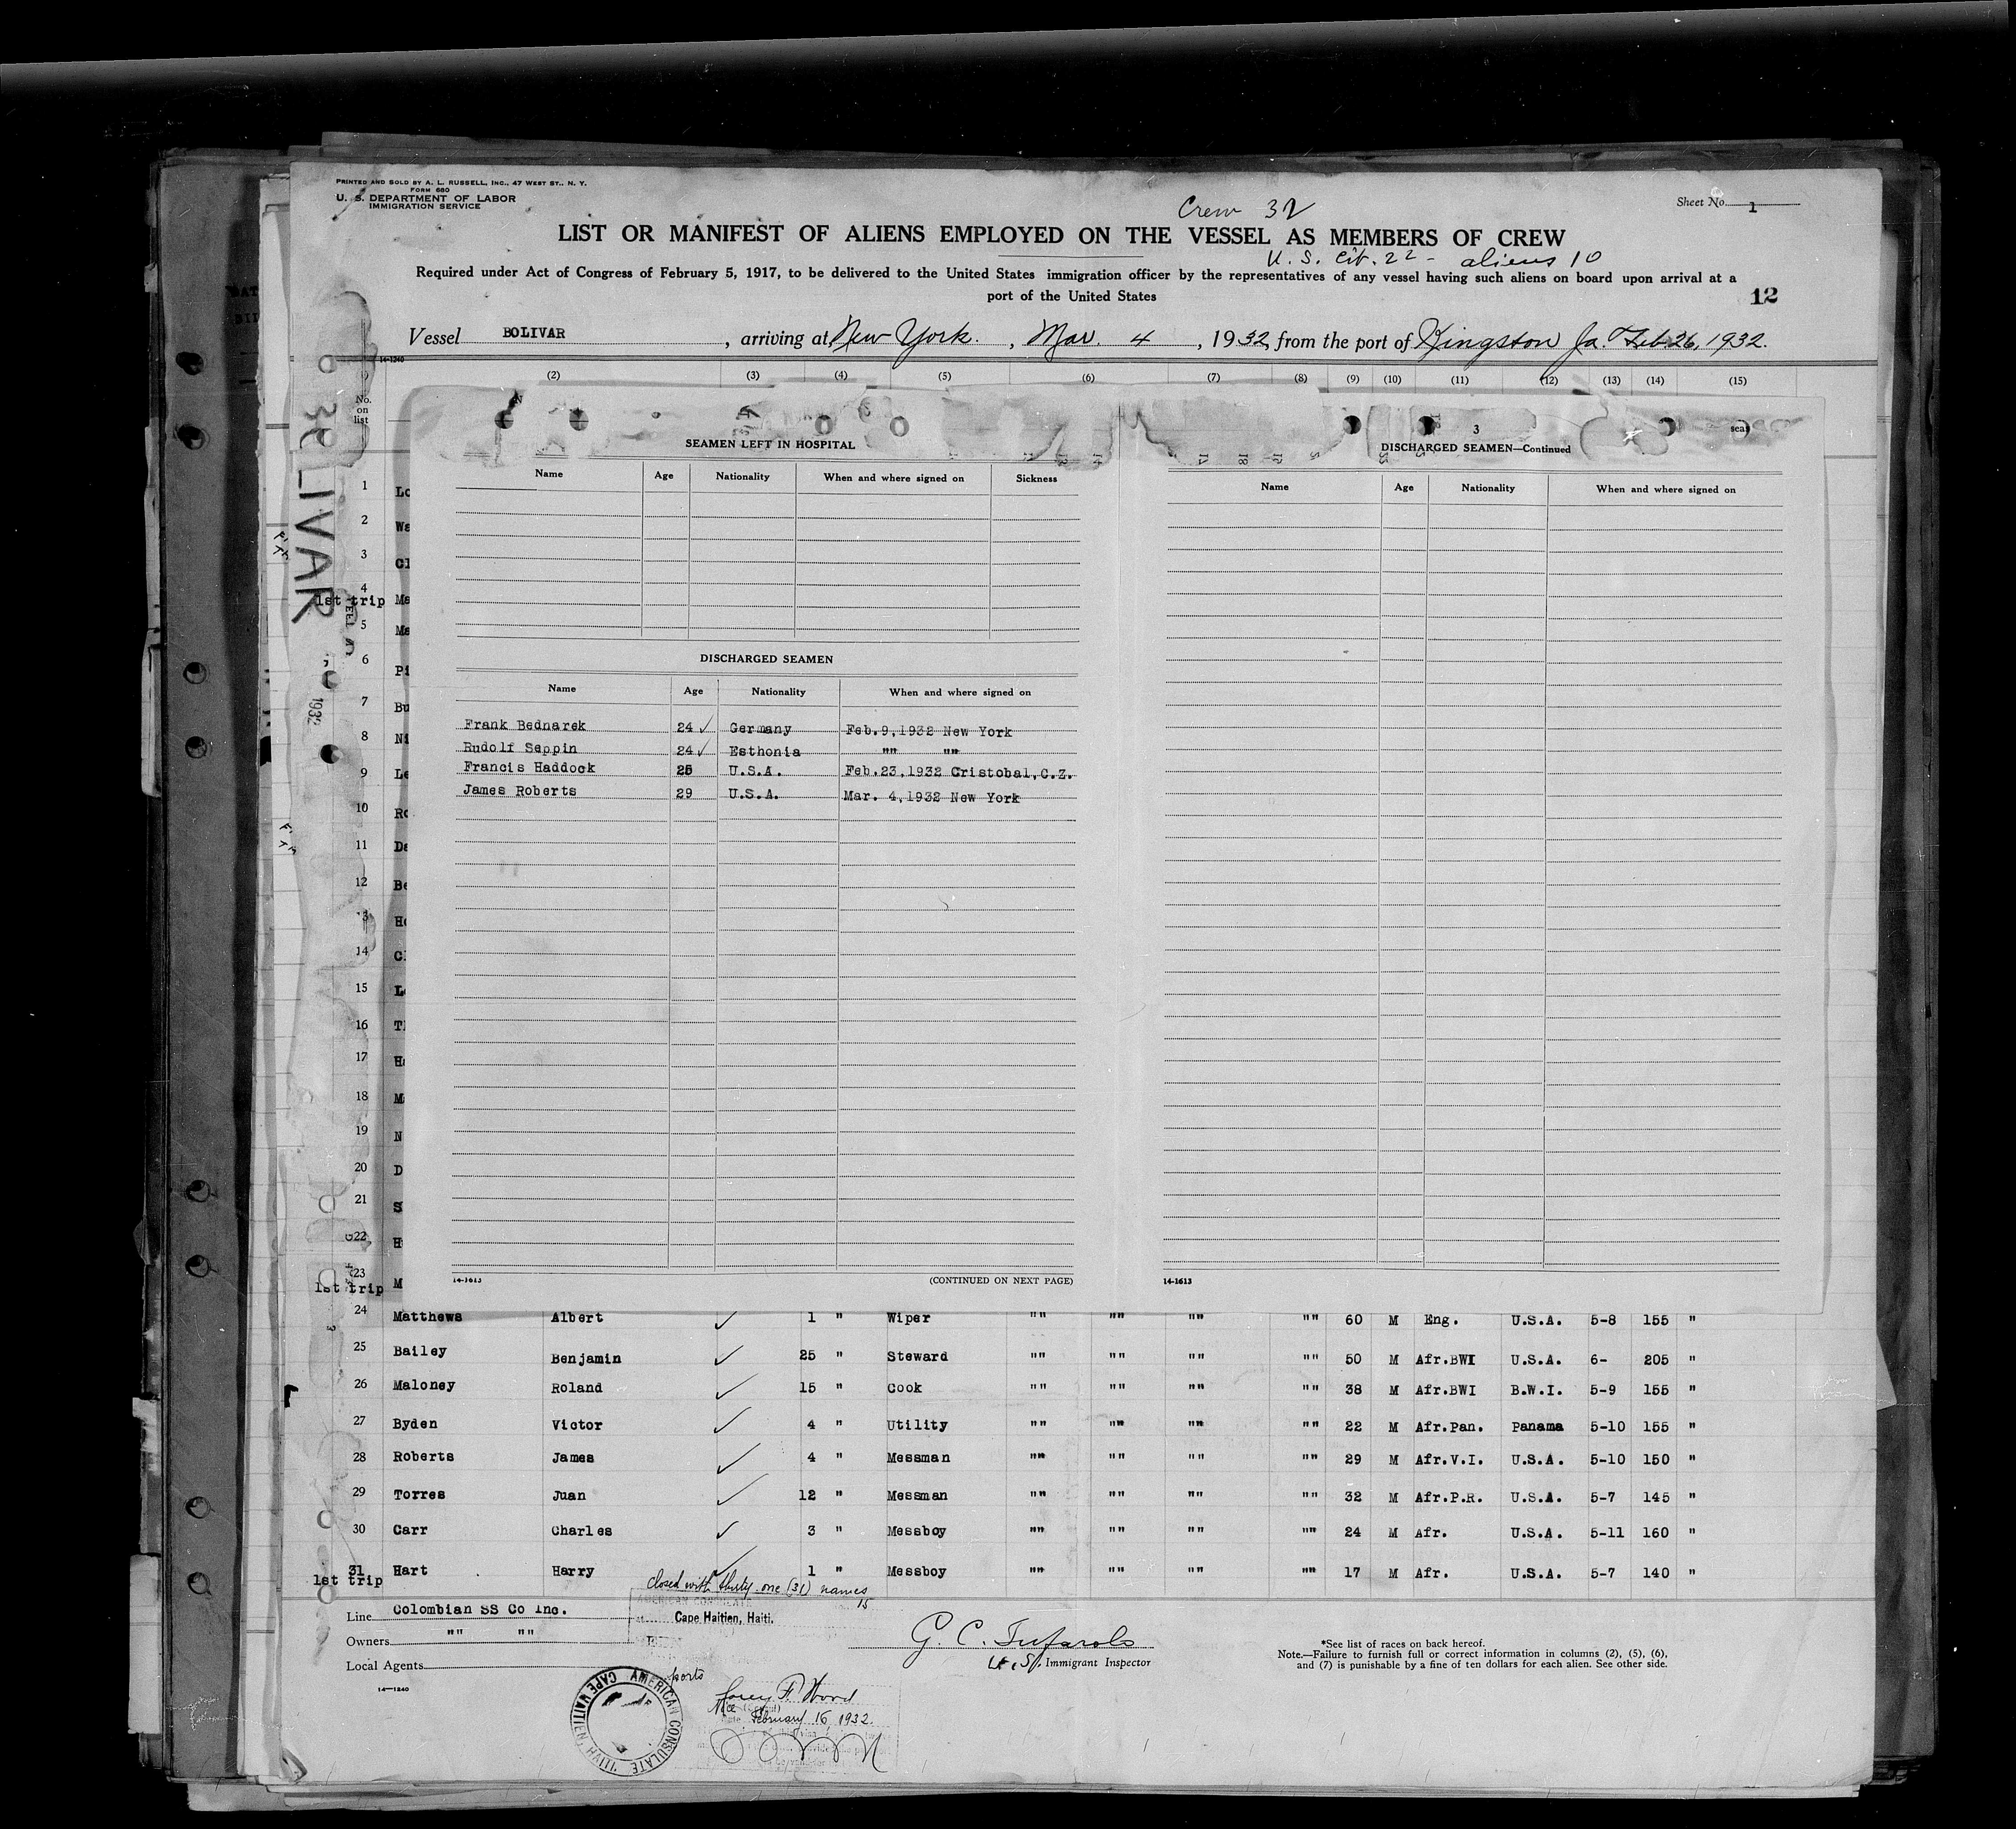 PRINTED AND SOLD BY A. L. RUSSELL, INC., 47 WEST ST., N. Y.
FORM 680
U. S. DEPARTMENT OF LABOR
IMMIGRATION SERVICE
Crew 32
Sheet No. 1
LIST OR MANIFEST OF ALIENS EMPLOYED ON THE VESSEL AS MEMBERS OF CREW
U. S. Cit. 22 - aliens 10
Required under Act of Congress of February 5, 1917, to be delivered to the United States immigration officer by the representatives of any vessel having such aliens on board upon arrival at a
port of the United States
12
Vessel BOLIVAR, arriving at New York., Mar. 4, 1932, from the port of Kingston Ja. Feb. 26, 1932.
14-1240
(2) (3) (4) (5) (6) (7) (8) (9) (10) (11) (12) (13) (14) (15)
No.
on
list
BOLIVAR
1932
SEAMEN LEFT IN HOSPITAL
Name Age Nationality When and where signed on Sickness
3
DISCHARGED SEAMEN—Continued
Name Age Nationality When and where signed on
DISCHARGED SEAMEN
Name Age Nationality When and where signed on
Frank Bednarek 24 ✓ Germany Feb.9,1932 New York
Rudolf Seppin 24 ✓ Esthonia "" ""
Francis Haddock 25 U.S.A. Feb.23,1932 Cristobal,C.Z.
James Roberts 29 U.S.A. Mar. 4,1932 New York
14-1613
(CONTINUED ON NEXT PAGE)
14-1613
1 Lo
2 Wa
3 Cl
4 Ma
1st trip
5 Ma
6 Pi
7 Bu
8 Ni
9 Le
10 Ro
11 Da
12 Be
13 Ho
14 Cl
15 L
16 T
17 H
18 M
19 N
20 D
21 S
22 H
23 M
1st trip
24 Matthews Albert ✓ 1 " Wiper "" "" "" "" 60 M Eng. U.S.A. 5-8 155 "
25 Bailey Benjamin ✓ 25 " Steward "" "" "" "" 50 M Afr.BWI U.S.A. 6- 205 "
26 Maloney Roland ✓ 15 " Cook "" "" "" "" 38 M Afr.BWI B.W.I. 5-9 155 "
27 Byden Victor ✓ 4 " Utility "" "" "" "" 22 M Afr.Pan. Panama 5-10 155 "
28 Roberts James ✓ 4 " Messman "" "" "" "" 29 M Afr.V.I. U.S.A. 5-10 150 "
29 Torres Juan ✓ 12 " Messman "" "" "" "" 32 M Afr.P.R. U.S.A. 5-7 145 "
30 Carr Charles ✓ 3 " Messboy "" "" "" "" 24 M Afr. U.S.A. 5-11 160 "
31 Hart Harry ✓ 1 " Messboy "" "" "" "" 17 M Afr. U.S.A. 5-7 140 "
1st trip
closed with thirty-one (31) names
15
Line Colombian SS Co Inc.
AMERICAN CONSULATE
Cape Haitien, Haiti.
Owners "" ""
Local Agents
14—1240
ports
U.S. Immigrant Inspector
*See list of races on back hereof.
Note.—Failure to furnish full or correct information in columns (2), (5), (6),
and (7) is punishable by a fine of ten dollars for each alien. See other side.
AMERICAN CONSULATE
CAPE HAITIEN, HAITI
Vice
February 16, 1932.